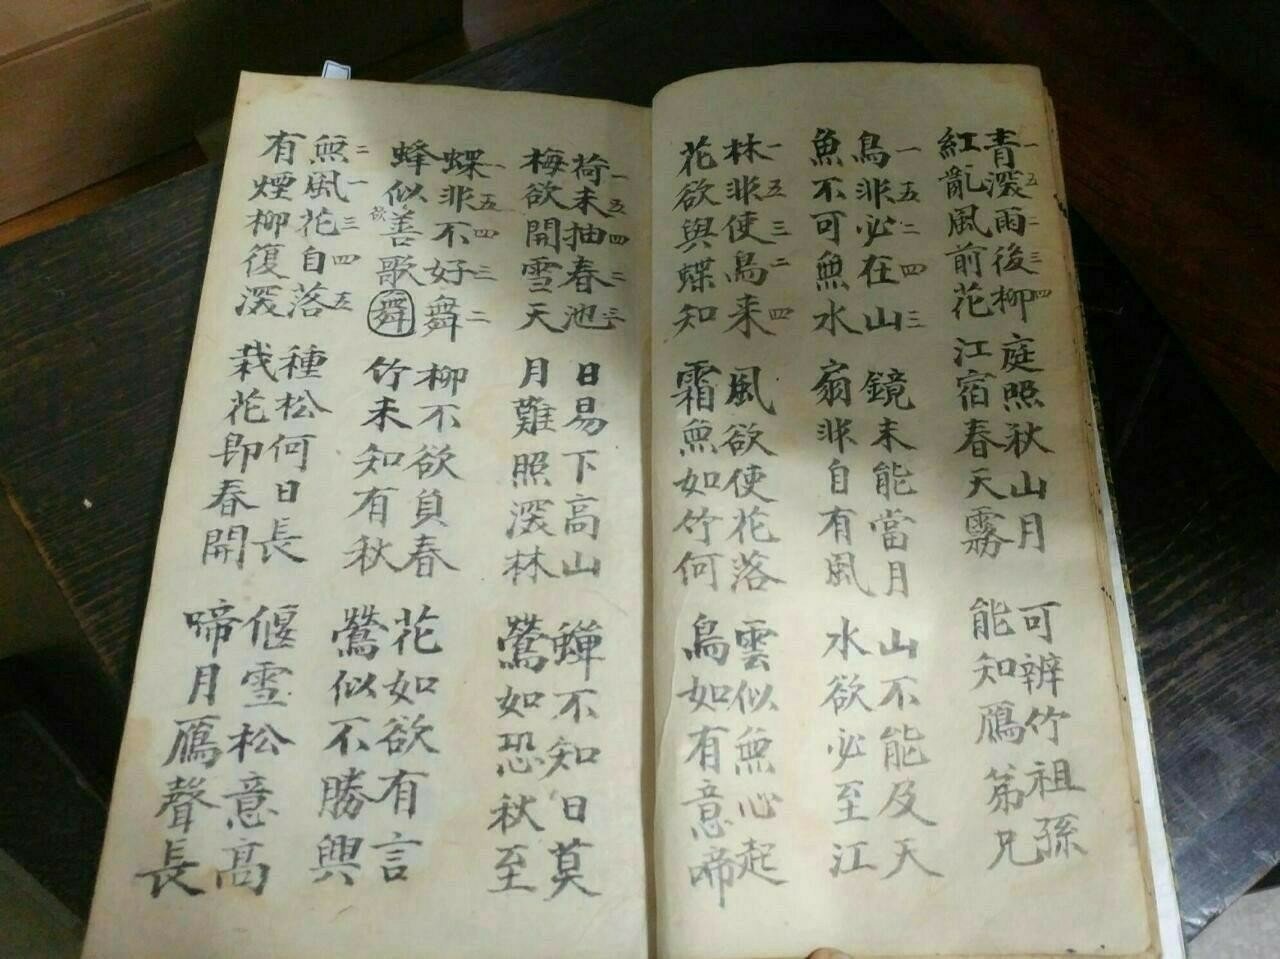 一五二三四
青深雨後柳 庭照秋山月 可辨竹祖孫
紅亂風前花 江宿春天霧 能知鴈苐兄
一五二四三
鳥非必在山 鏡未能當月 山不能及天
魚不可無水 扇非自有風 水欲必至江
一五三二四
林非使鳥來 風欲使花落 雲似無心起
花欲與蝶知 霜無如竹何 鳥如有意啼
一五四二三
荷未抽春池 日易下高山 蟬不知日莫
梅欲開雪天 月難照深林 鶯如恐秋至
一五四三二
蝶非不好舞 柳不欲負春 花如欲有言
蜂似善歌舞 竹未知有秋 鶯似不勝興
欲
二一三四五
無風花自落 種松何日長 偃雪松意高
有煙柳復深 栽花即春開 啼月鴈聲長